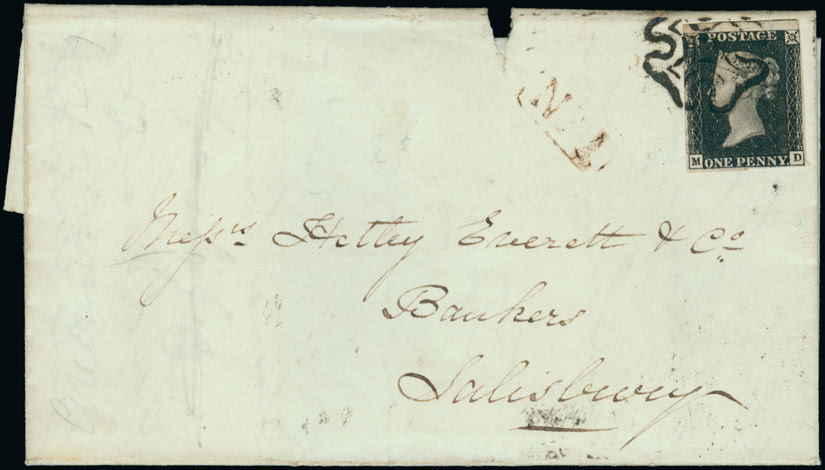 POSTAGE
M ONE PENNY D
No. 1
Messrs Hetley Everett & Co
Bankers
Salisbury